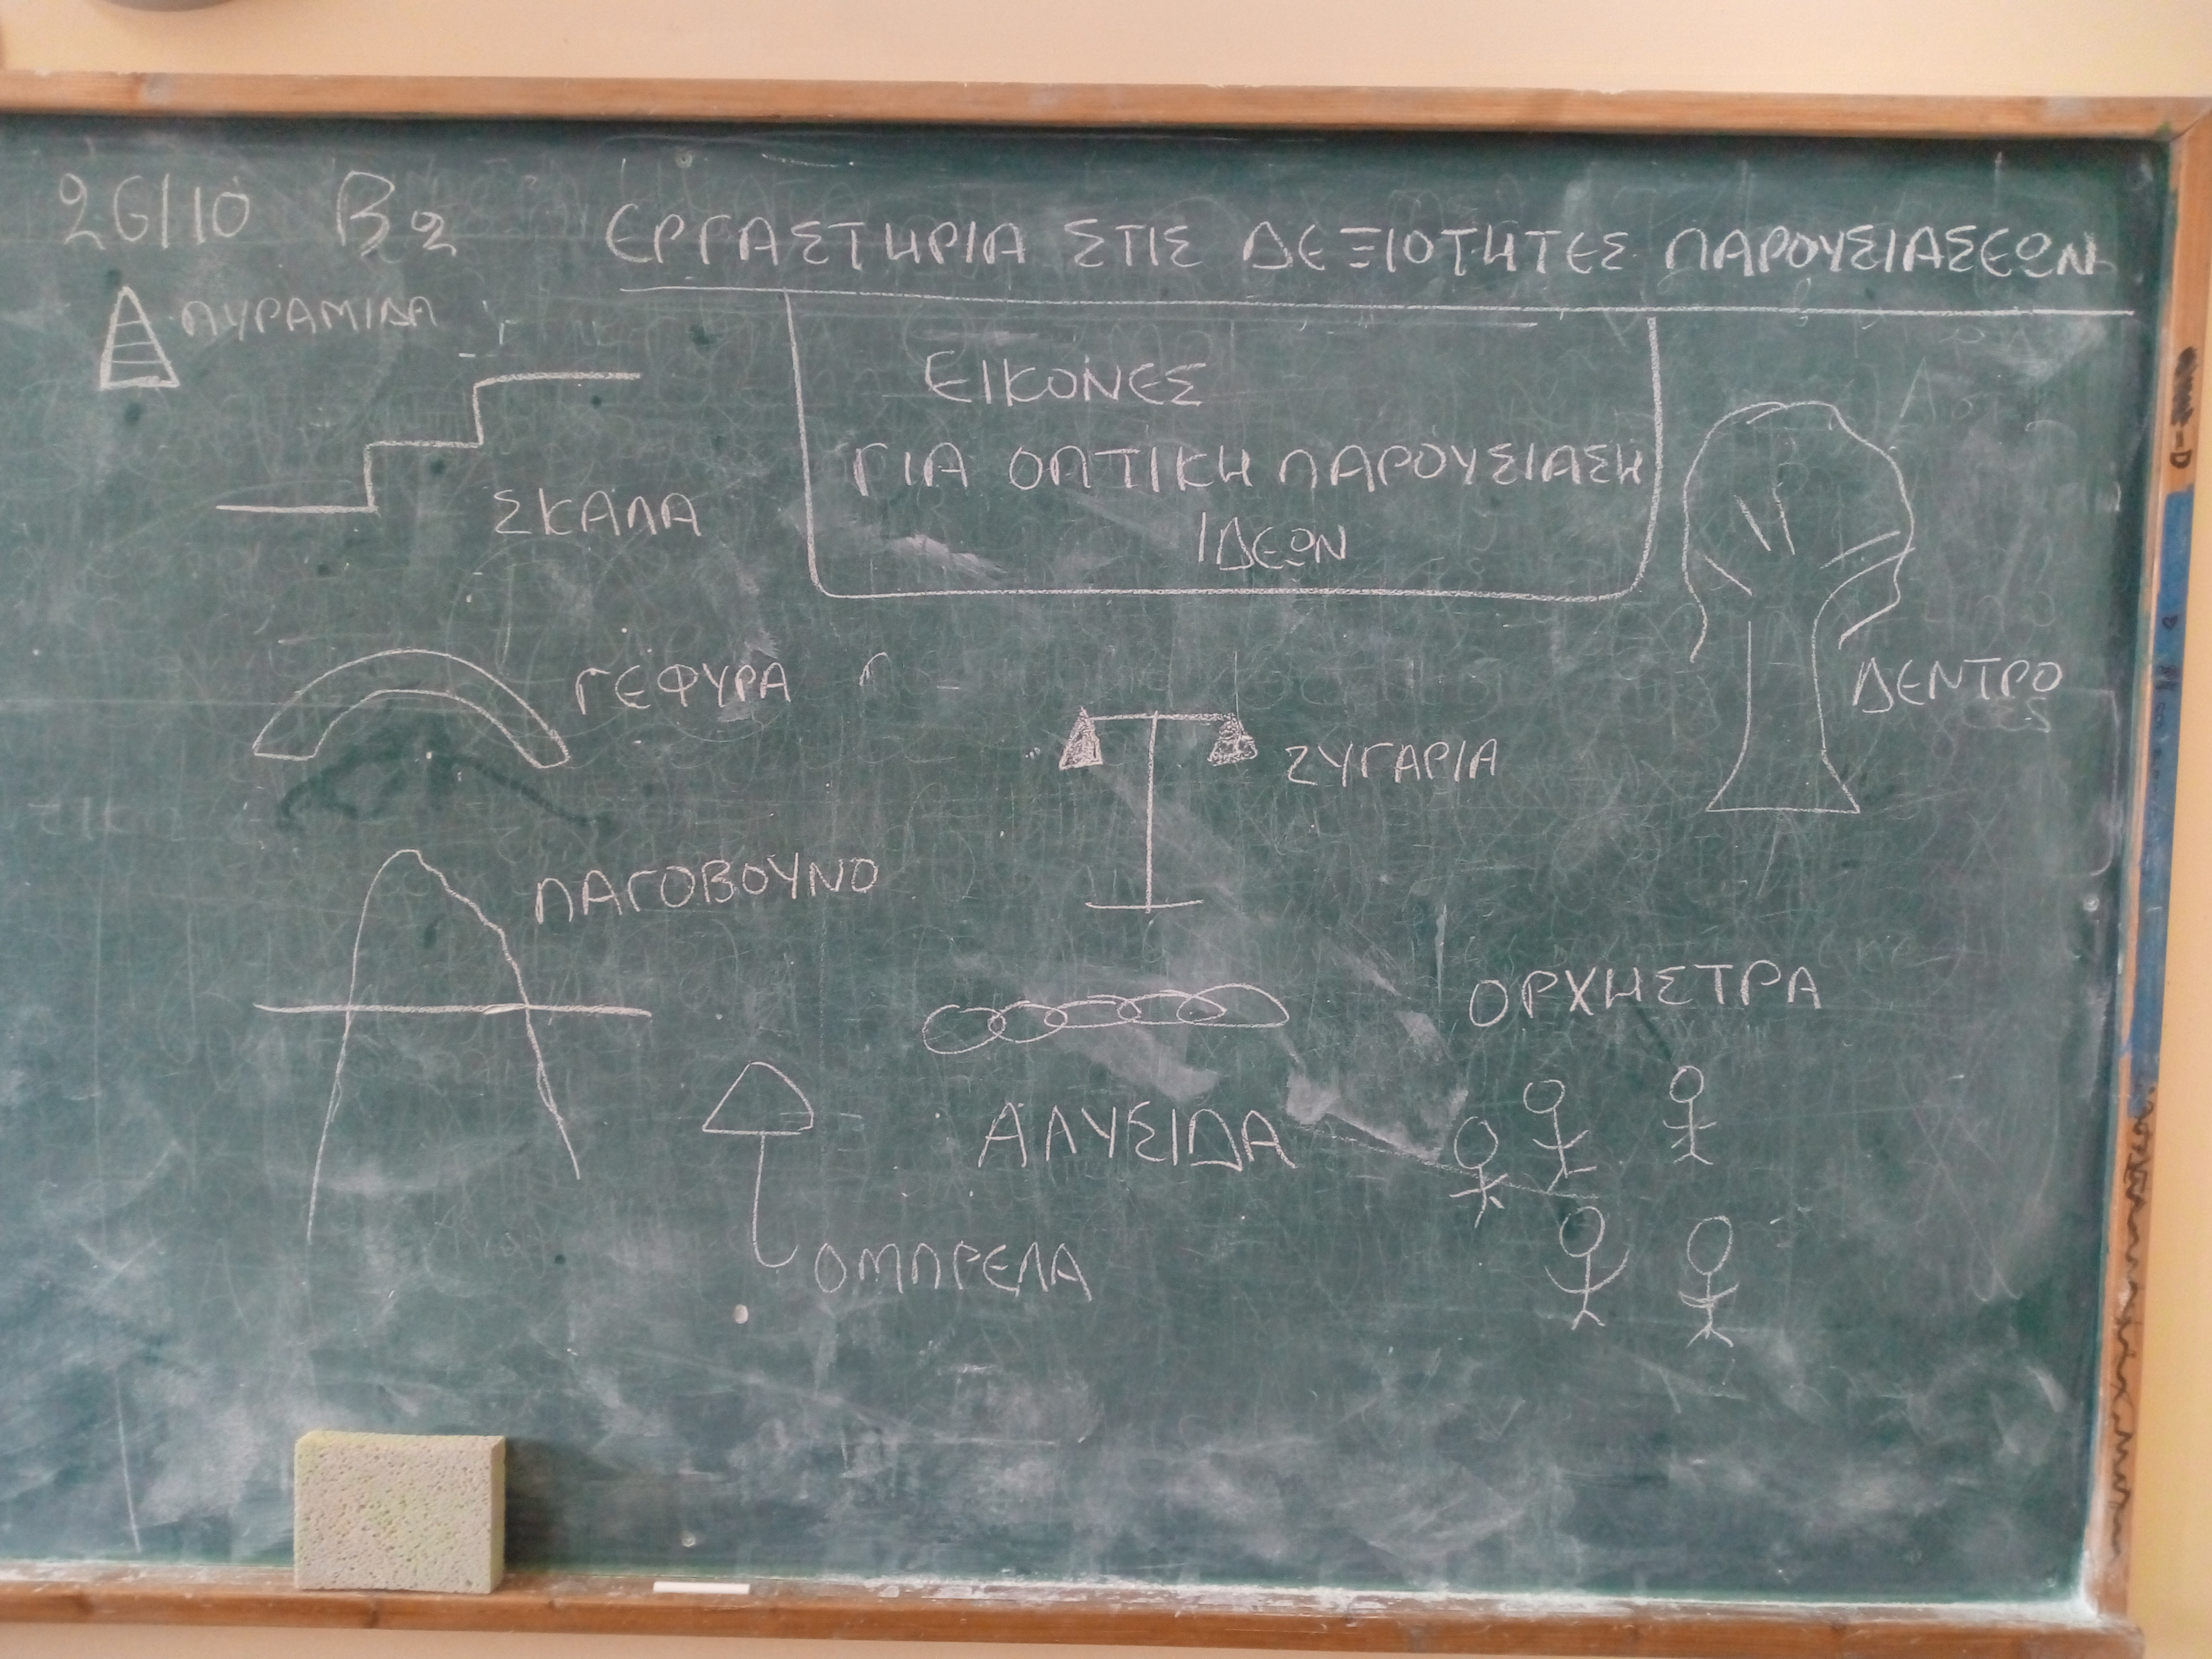 26/10 Β2 ΕΡΓΑΣΤΗΡΙΑ ΣΤΙΣ ΔΕΞΙΟΤΗΤΕΣ ΠΑΡΟΥΣΙΑΣΕΩΝ
ΠΥΡΑΜΙΔΑ
ΕΙΚΟΝΕΣ
ΓΙΑ ΟΠΤΙΚΗ ΠΑΡΟΥΣΙΑΣΗ
ΙΔΕΩΝ
ΣΚΑΛΑ
ΓΕΦΥΡΑ
ΔΕΝΤΡΟ
ΖΥΓΑΡΙΑ
ΠΑΓΟΒΟΥΝΟ
ΟΡΧΗΣΤΡΑ
ΑΛΥΣΙΔΑ
ΟΜΠΡΕΛΑ